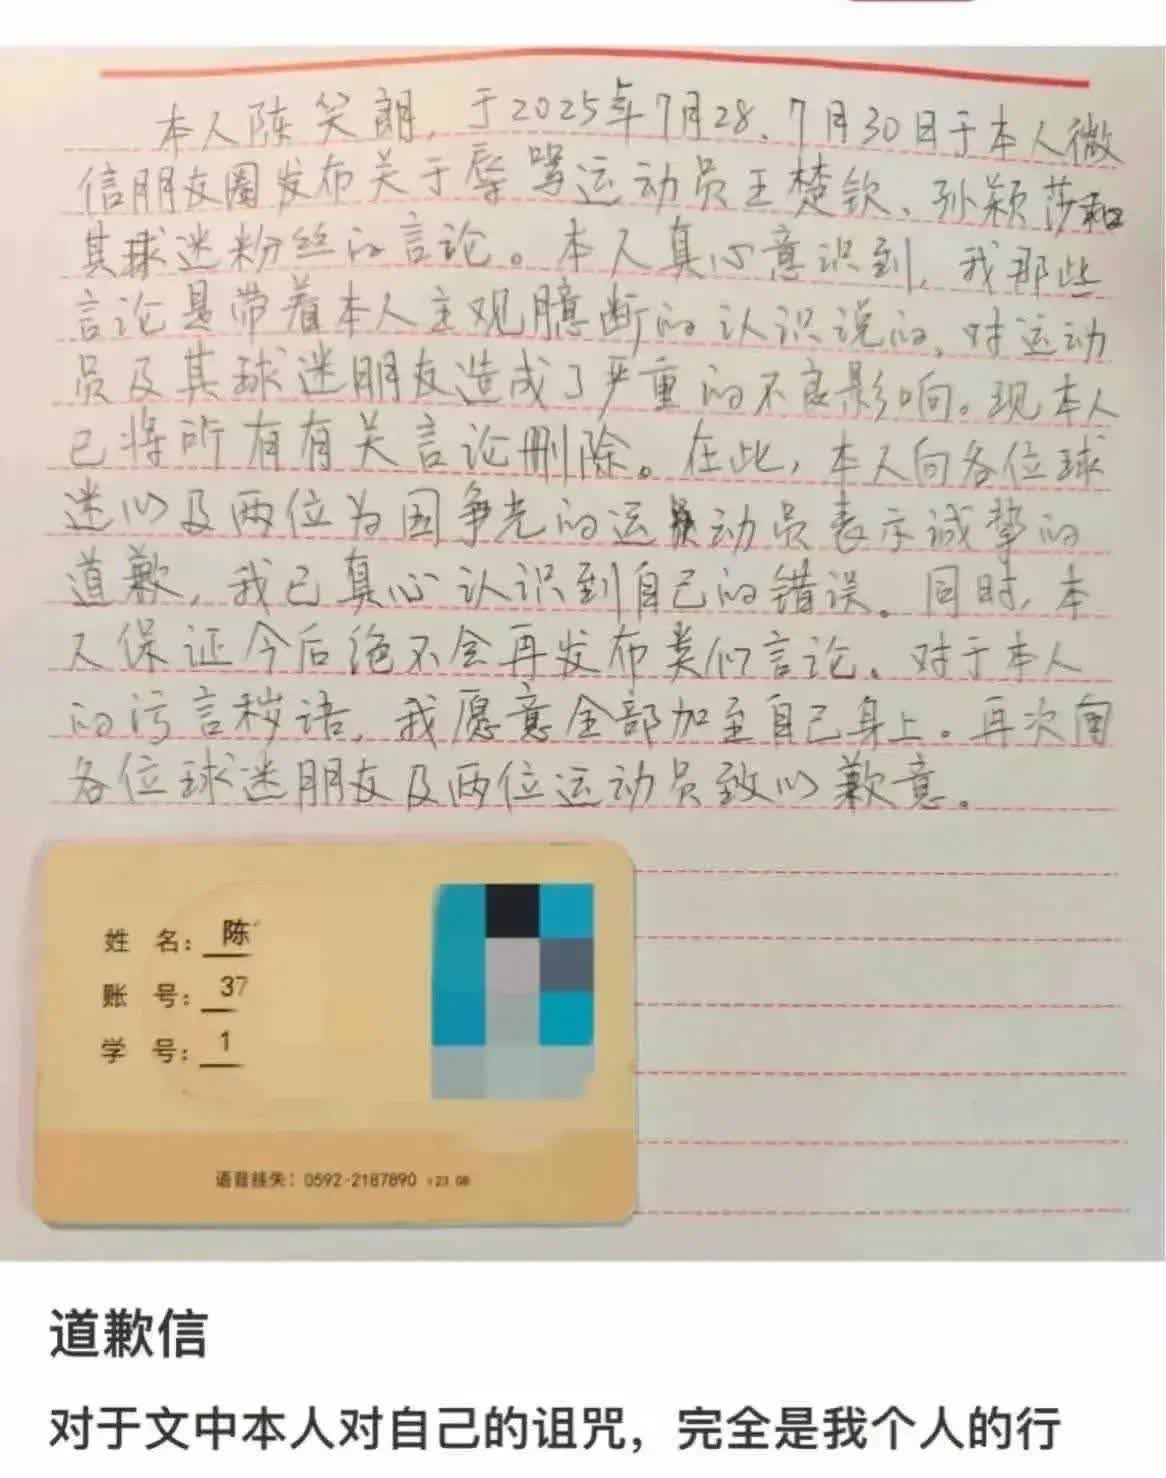 本人陈笑朗，于2025年7月28、7月30日于本人微
信朋友圈发布关于辱骂运动员王楚钦、孙颖莎和
其球迷粉丝的言论。本人真心意识到，我那些
言论是带着本人主观臆断的认识说的，对运动
员及其球迷朋友造成了严重的不良影响。现本人
已将所有有关言论删除。在此，本人向各位球
迷以及两位为国争光的运动员表示诚挚的
道歉，我已真心认识到自己的错误。同时，本
人保证今后绝不会再发布类似言论。对于本人
的污言秽语，我愿意全部加至自己身上。再次向
各位球迷朋友及两位运动员致以歉意。
姓 名：陈
账 号：37
学 号：1
0592-2187890
道歉信
对于文中本人对自己的诅咒，完全是我个人的行